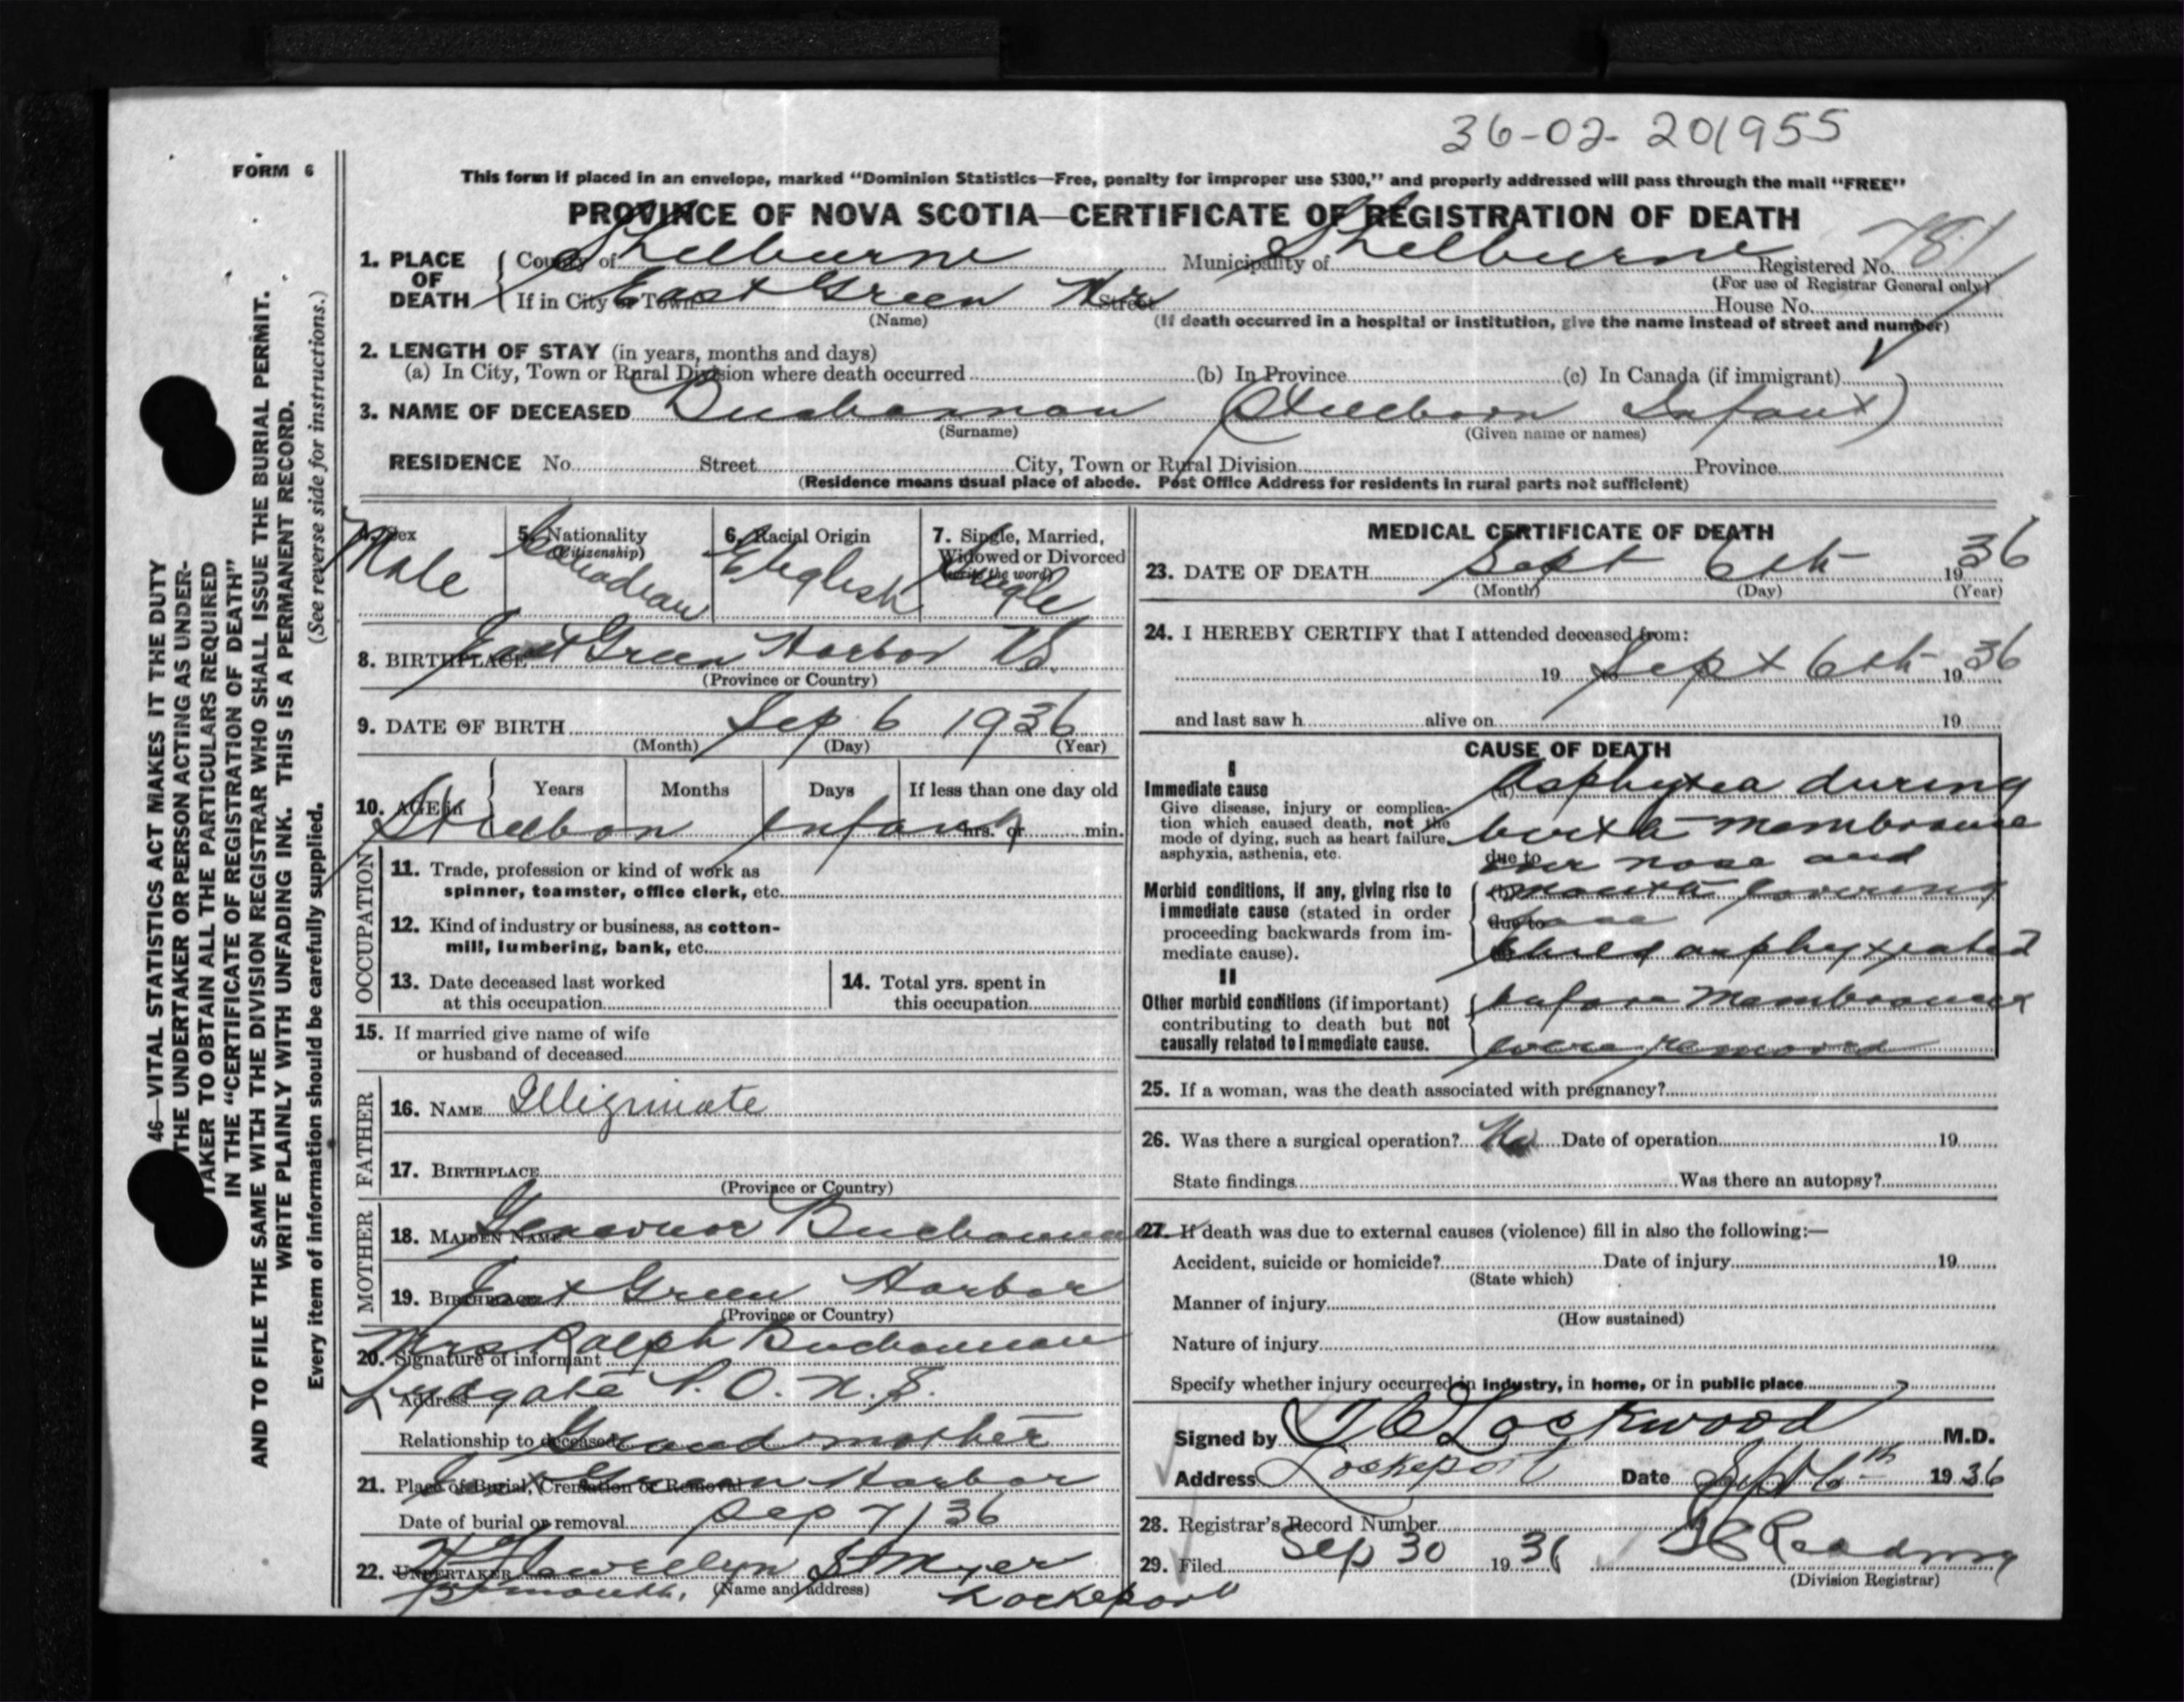 36-02-201955
FORM 6
This form if placed in an envelope, marked “Dominion Statistics—Free, penalty for improper use $300,” and properly addressed will pass through the mail “FREE”
PROVINCE OF NOVA SCOTIA—CERTIFICATE OF REGISTRATION OF DEATH
1. PLACE OF DEATH County of Shelburne Municipality of Shelburne Registered No. 781
(For use of Registrar General only)
If in City or Town East Green Hr Street House No.
(Name) (If death occurred in a hospital or institution, give the name instead of street and number)
2. LENGTH OF STAY (in years, months and days)
(a) In City, Town or Rural Division where death occurred (b) In Province (c) In Canada (if immigrant)
3. NAME OF DECEASED Buchannan (Stillborn Infant)
(Surname) (Given name or names)
RESIDENCE No. Street City, Town or Rural Division Province
(Residence means usual place of abode. Post Office Address for residents in rural parts not sufficient)
4. Sex Male
5. Nationality (Citizenship) Canadian
6. Racial Origin English
7. Single, Married, Widowed or Divorced (write the word) Single
8. BIRTHPLACE East Green Harbor N.S.
(Province or Country)
9. DATE OF BIRTH Sep 6 1936
(Month) (Day) (Year)
10. AGE in Years Months Days If less than one day old
Stillborn Infant hrs. or min.
OCCUPATION
11. Trade, profession or kind of work as
spinner, teamster, office clerk, etc.
12. Kind of industry or business, as cotton-
mill, lumbering, bank, etc.
13. Date deceased last worked
at this occupation
14. Total yrs. spent in
this occupation
15. If married give name of wife
or husband of deceased
FATHER
16. NAME Illigimate
17. BIRTHPLACE
(Province or Country)
MOTHER
18. MAIDEN NAME Buchannan
19. BIRTHPLACE East Green Harbor
(Province or Country)
20. Signature of informant Mrs Ralph Buchannan
Address Lydgate P.O. N.S.
Relationship to deceased Grand mother
21. Place of Burial, Cremation or Removal East Green Harbor
Date of burial or removal Sep 7/36
22. UNDERTAKER Llewellyn
(Name and address) Lockeport
MEDICAL CERTIFICATE OF DEATH
23. DATE OF DEATH Sept 6th 1936
(Month) (Day) (Year)
24. I HEREBY CERTIFY that I attended deceased from:
19 Sept 6th 1936
and last saw h alive on 19
CAUSE OF DEATH
I
Immediate cause
Give disease, injury or complica-
tion which caused death, not the
mode of dying, such as heart failure,
asphyxia, asthenia, etc.
(a) Asphyxia during
birth membrane
due to
over nose and
Morbid conditions, if any, giving rise to
immediate cause (stated in order
proceeding backwards from im-
mediate cause).
(b) mouth covering
due to
face
child asphyxiated
II
Other morbid conditions (if important)
contributing to death but not
causally related to immediate cause.
before Membranes
were removed
25. If a woman, was the death associated with pregnancy?
26. Was there a surgical operation? No Date of operation 19
State findings Was there an autopsy?
27. If death was due to external causes (violence) fill in also the following:—
Accident, suicide or homicide? Date of injury 19
(State which)
Manner of injury
(How sustained)
Nature of injury
Specify whether injury occurred in industry, in home, or in public place
Signed by Lockwood M.D.
Address Lockeport Date Sept 6th 1936
28. Registrar's Record Number
29. Filed Sep 30 1936
(Division Registrar)
46—VITAL STATISTICS ACT MAKES IT THE DUTY
THE UNDERTAKER OR PERSON ACTING AS UNDER-
TAKER TO OBTAIN ALL THE PARTICULARS REQUIRED
IN THE “CERTIFICATE OF REGISTRATION OF DEATH”
AND TO FILE THE SAME WITH THE DIVISION REGISTRAR WHO SHALL ISSUE THE BURIAL PERMIT.
WRITE PLAINLY WITH UNFADING INK. THIS IS A PERMANENT RECORD.
Every item of information should be carefully supplied. (See reverse side for instructions.)